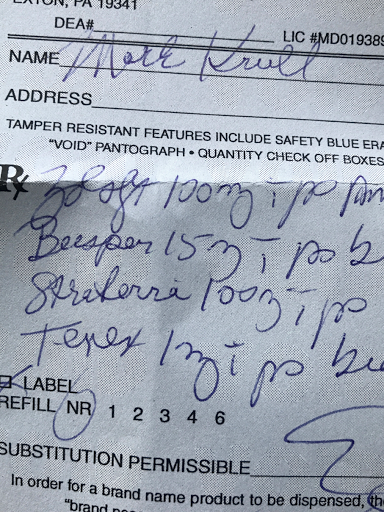 EXTON, PA 19341
DEA# LIC #MD019389
NAME Mark Krull
ADDRESS
TAMPER RESISTANT FEATURES INCLUDE SAFETY BLUE ERA
"VOID" PANTOGRAPH • QUANTITY CHECK OFF BOXES
Rx Zoloft 100mg i po
Buspar 15mg i po b
Straterra 100mg i po
Tenex 1mg i po
LABEL
REFILL NR 1 2 3 4 6
SUBSTITUTION PERMISSIBLE
In order for a brand name product to be dispensed, the
"brand